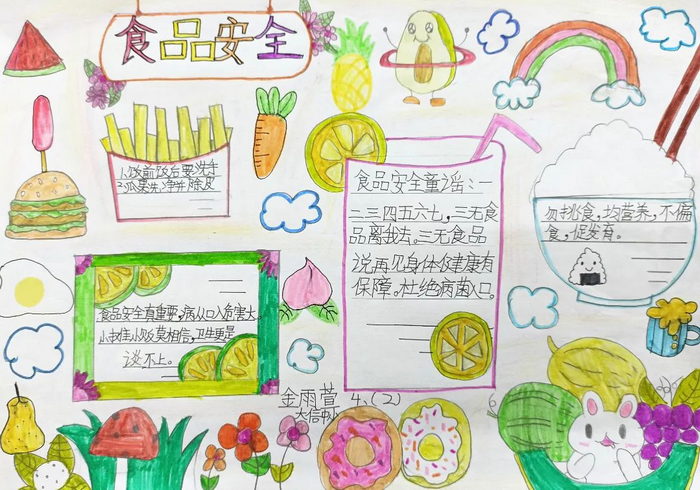 食品安全
1.饭前饭后要洗手
2.瓜果洗净并除皮
食品安全童谣:一
二三四五六七,三无食
品离我去。三无食品
说再见身体健康有
保障。杜绝病菌入口。
勿挑食,均营养,不偏
食,促发育。
食品安全真重要,病从口入危害大。
小摊小贩莫相信,卫生更是
谈不上。
金雨萱 4.(2)